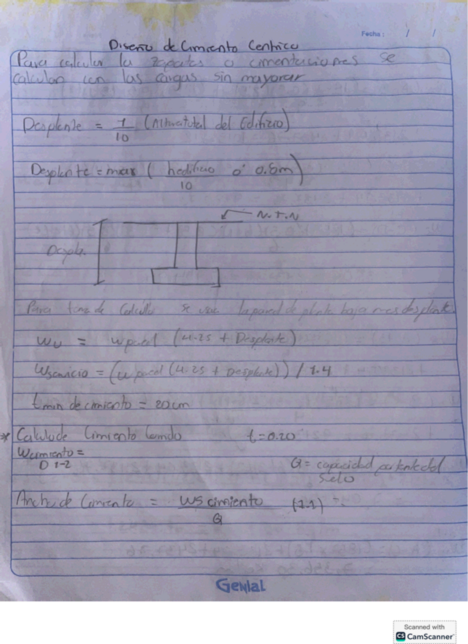 Fecha: / /
Diseño de Cimiento Centrico
Para calcular las zapatas o cimentaciones se
calculan con las cargas sin mayorar
Desplante = 1/10 (Altura total del Edificio)
Desplante = max ( hedificio/10 o 0.6m)
N.T.N
Despla.
Para de Calculo se usa la pared de planta baja mas desplante
Wu = wpared ( + Desplante)
Wservicio = (wpared ( + Desplante)) / 1.4
tmin de cimiento = 20cm
* Calculo de Cimiento t=0.20
Wcimiento =
D 1-2
Q = capacidad portante del
suelo
Ancho de Cimiento = Wscimiento / Q (1.1)
Genial
Scanned with
CS CamScanner